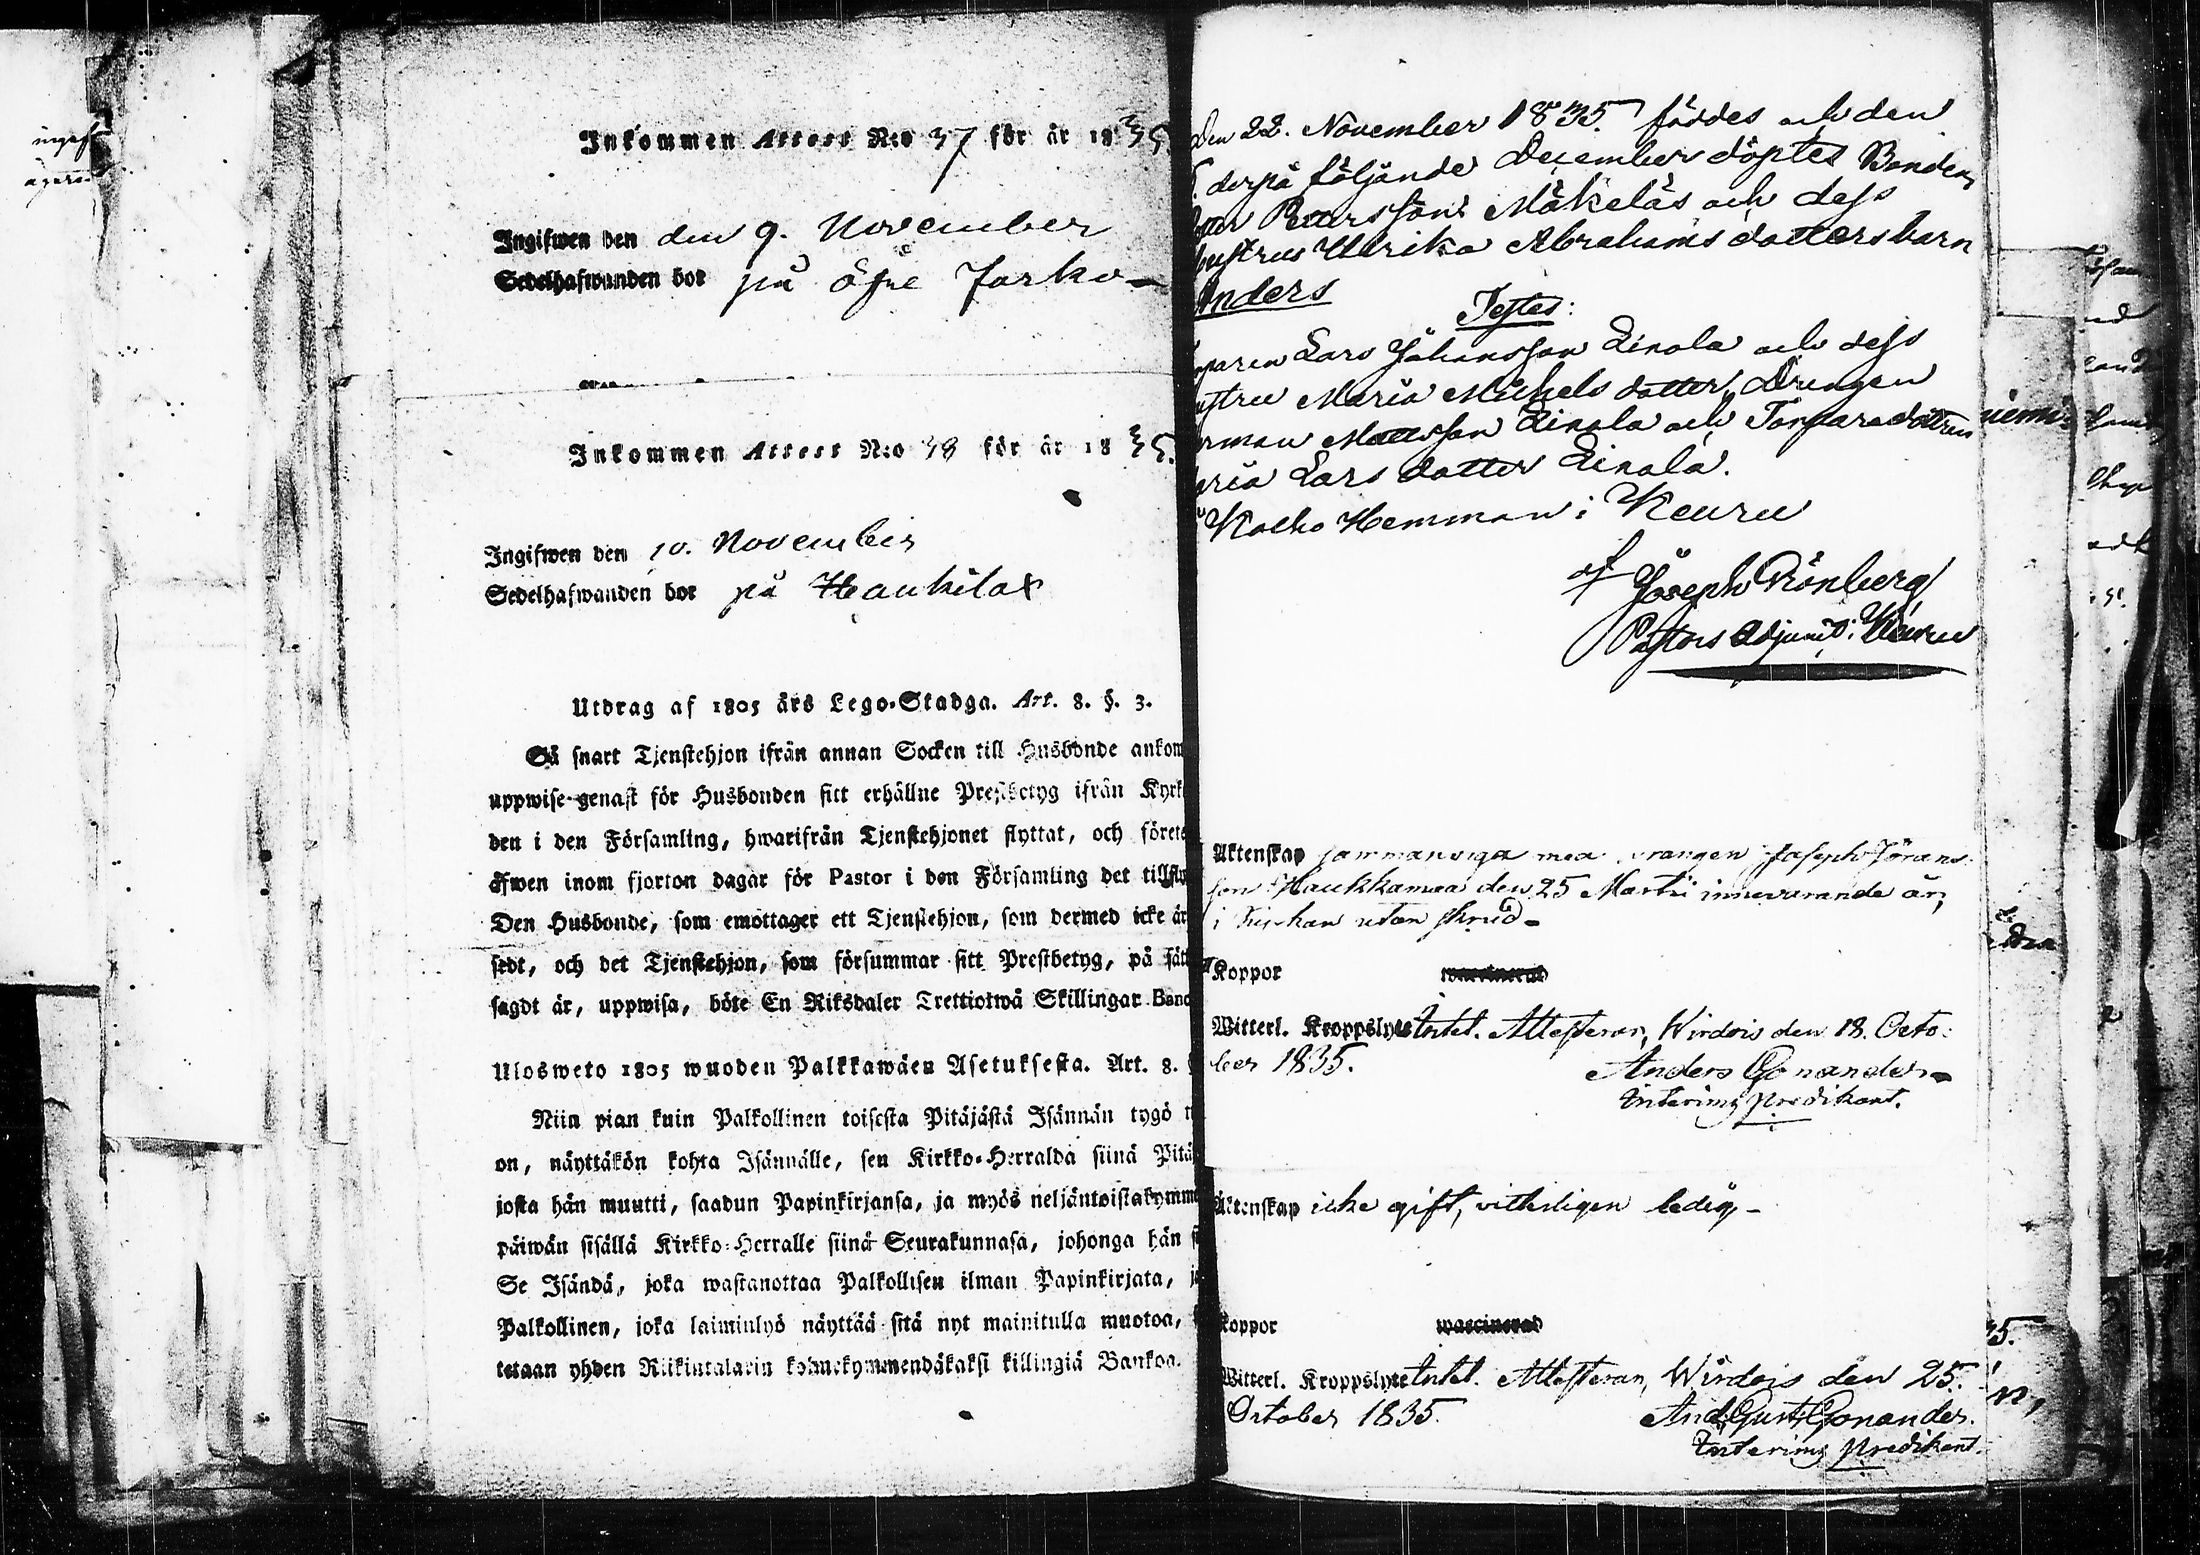 Inkommen Attest N:o 37 för år 1835
Ingifwen den den 9. November
Sedelhafwanden bor på Öfre Jarko-
Inkommen Attest N:o 38 för år 1835.
Ingifwen den 10. November
Sedelhafwanden bor på Haukilax
Utdrag af 1805 års Lego-Stadga. Art. 8. §. 3.
Så snart Tjenstehjon ifrån annan Socken till Husbonde ankom
uppwise genast för Husbonden sitt erhållne Prestbetyg ifrån Kyrk
den i den Församling, hwarifrån Tjenstehjonet flyttat, och förete
äfwen inom fjorton dagar för Pastor i den Församling det tillfly
Den Husbonde, som emottager ett Tjenstehjon, som dermed icke är
sedt, och det Tjenstehjon, som försummar sitt Prestbetyg, på sätt
sagdt är, uppwisa, böte En Riksdaler Trettiotwå Skillingar Banc
Ulosweto 1805 wuoden Palkkawäen Asetuksesta. Art. 8. §
Niin pian kuin Palkollinen toisesta Pitäjästä Isännän tygö t
on, näyttäkön kohta Isännälle, sen Kirkko-Herralda siinä Pitä
josta hän muutti, saadun Papinkirjansa, ja myös neljäntoistakymme
päiwän sisällä Kirkko-Herralle siinä Seurakunnasa, johonga hän s
Se Isändä, joka wastanottaa Palkollisen ilman Papinkirjata, ja
Palkollinen, joka laiminlyö näyttää sitä nyt mainitulla muotoa,
tetaan yhden Riikintalarin kolmekymmendäkaksi killingiä Bankoa.
Den 22. November 1835. föddes och den
derpå följande December döptes Bonden
Petter Pettersson Mäkeläs och dess
hustrus Ulrika Abrahams dotters barn
Anders
Testes:
Torparen Lars Johansson Einola och dess
hustru Maria Michels dotter, Drengen
Herman Mattsson Einola och Torparedottren
Maria Lars dotter Einola.
Kolho Hemman i Keuru
af Joseph Rönberg
Pastors Adjunct i Keuru
Äktenskap sammanviga med drängen Joseph Jörans
son Haukkamaa den 25 Martii innevarande år,
i kyrkan utan skrud-
Koppor waccinerad
Witterl. Kroppslyte Intet. Attesterar, Wirdois den 18. Octo:
ber 1835.
Anders Gonander
Interims predikant.
Äktenskap icke gift, vitterligen ledig-
Koppor waccinerad
Witterl. Kroppslyte Intet. Attesterar, Wirdois den 25.
October 1835.
And. Gust. Gonander.
Interims predikant.